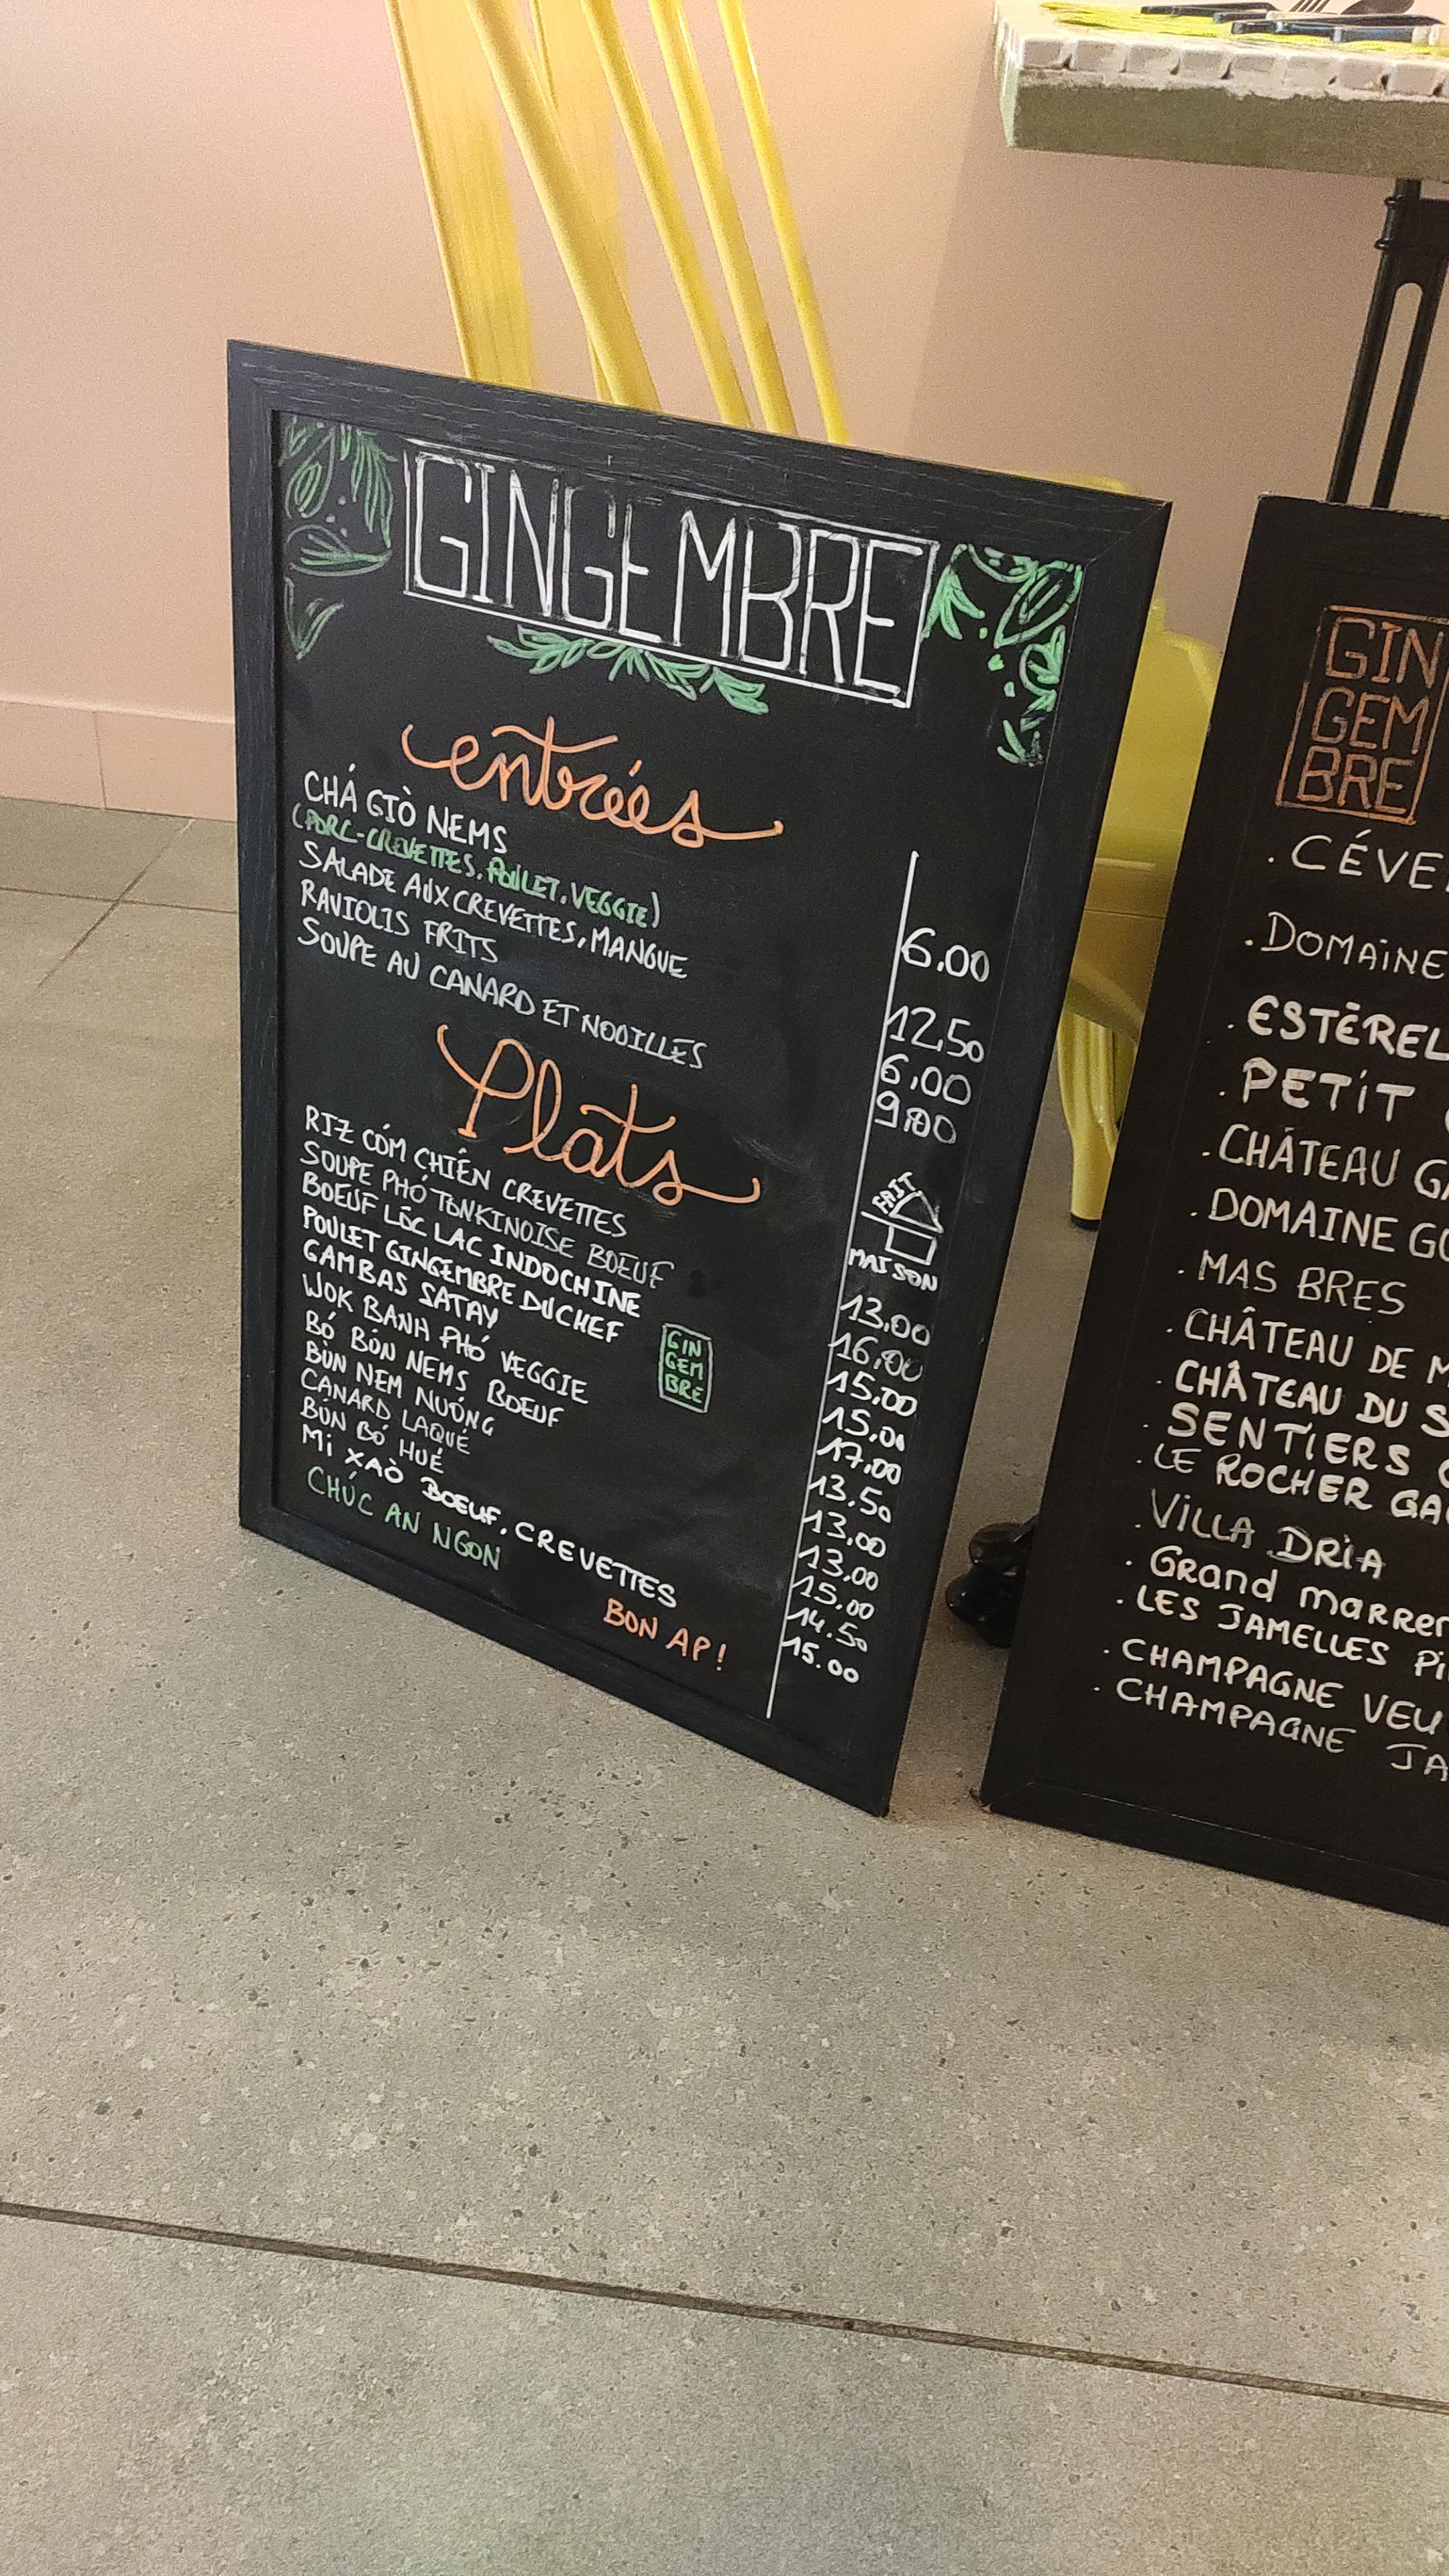 GINGEMBRE
entrées
CHÁ GIÒ NEMS
(PORC-CREVETTES, POULET, VEGGIE) 6.00
SALADE AUX CREVETTES, MANGUE 12,50
RAVIOLIS FRITS 6.00
SOUPE AU CANARD ET NOUILLES 9.00
Plats
FAIT
MAISON
RIZ CÓM CHIÊN CREVETTES 13,00
SOUPE PHÓ TONKINOISE BOEUF 16,00
BOEUF LÔC LAC INDOCHINE 15,00
POULET GINGEMBRE DU CHEF 15,00
GAMBAS SATAY 17,00
WOK BANH PHÓ VEGGIE 13,50
BÓ BÚN NEMS BOEUF 13,00
BÚN NEM NUÓNG 13,00
CANARD LAQUÉ 15,00
BÚN BÓ HUÉ 14.50
MI XAÒ BOEUF, CREVETTES 15.00
GIN
GEM
BRE
CHÚC AN NGON
BON AP!
GIN
GEM
BRE
. CÉVE
. DOMAINE
. ESTÉREL
. PETIT
. CHÂTEAU GA
. DOMAINE GO
. MAS BRES
. CHÂTEAU DE M
. CHÂTEAU DU S
. SENTIERS
. LE ROCHER GA
. VILLA DRIA
. Grand marren
. LES JAMELLES Pi
. CHAMPAGNE VEU
. CHAMPAGNE JA